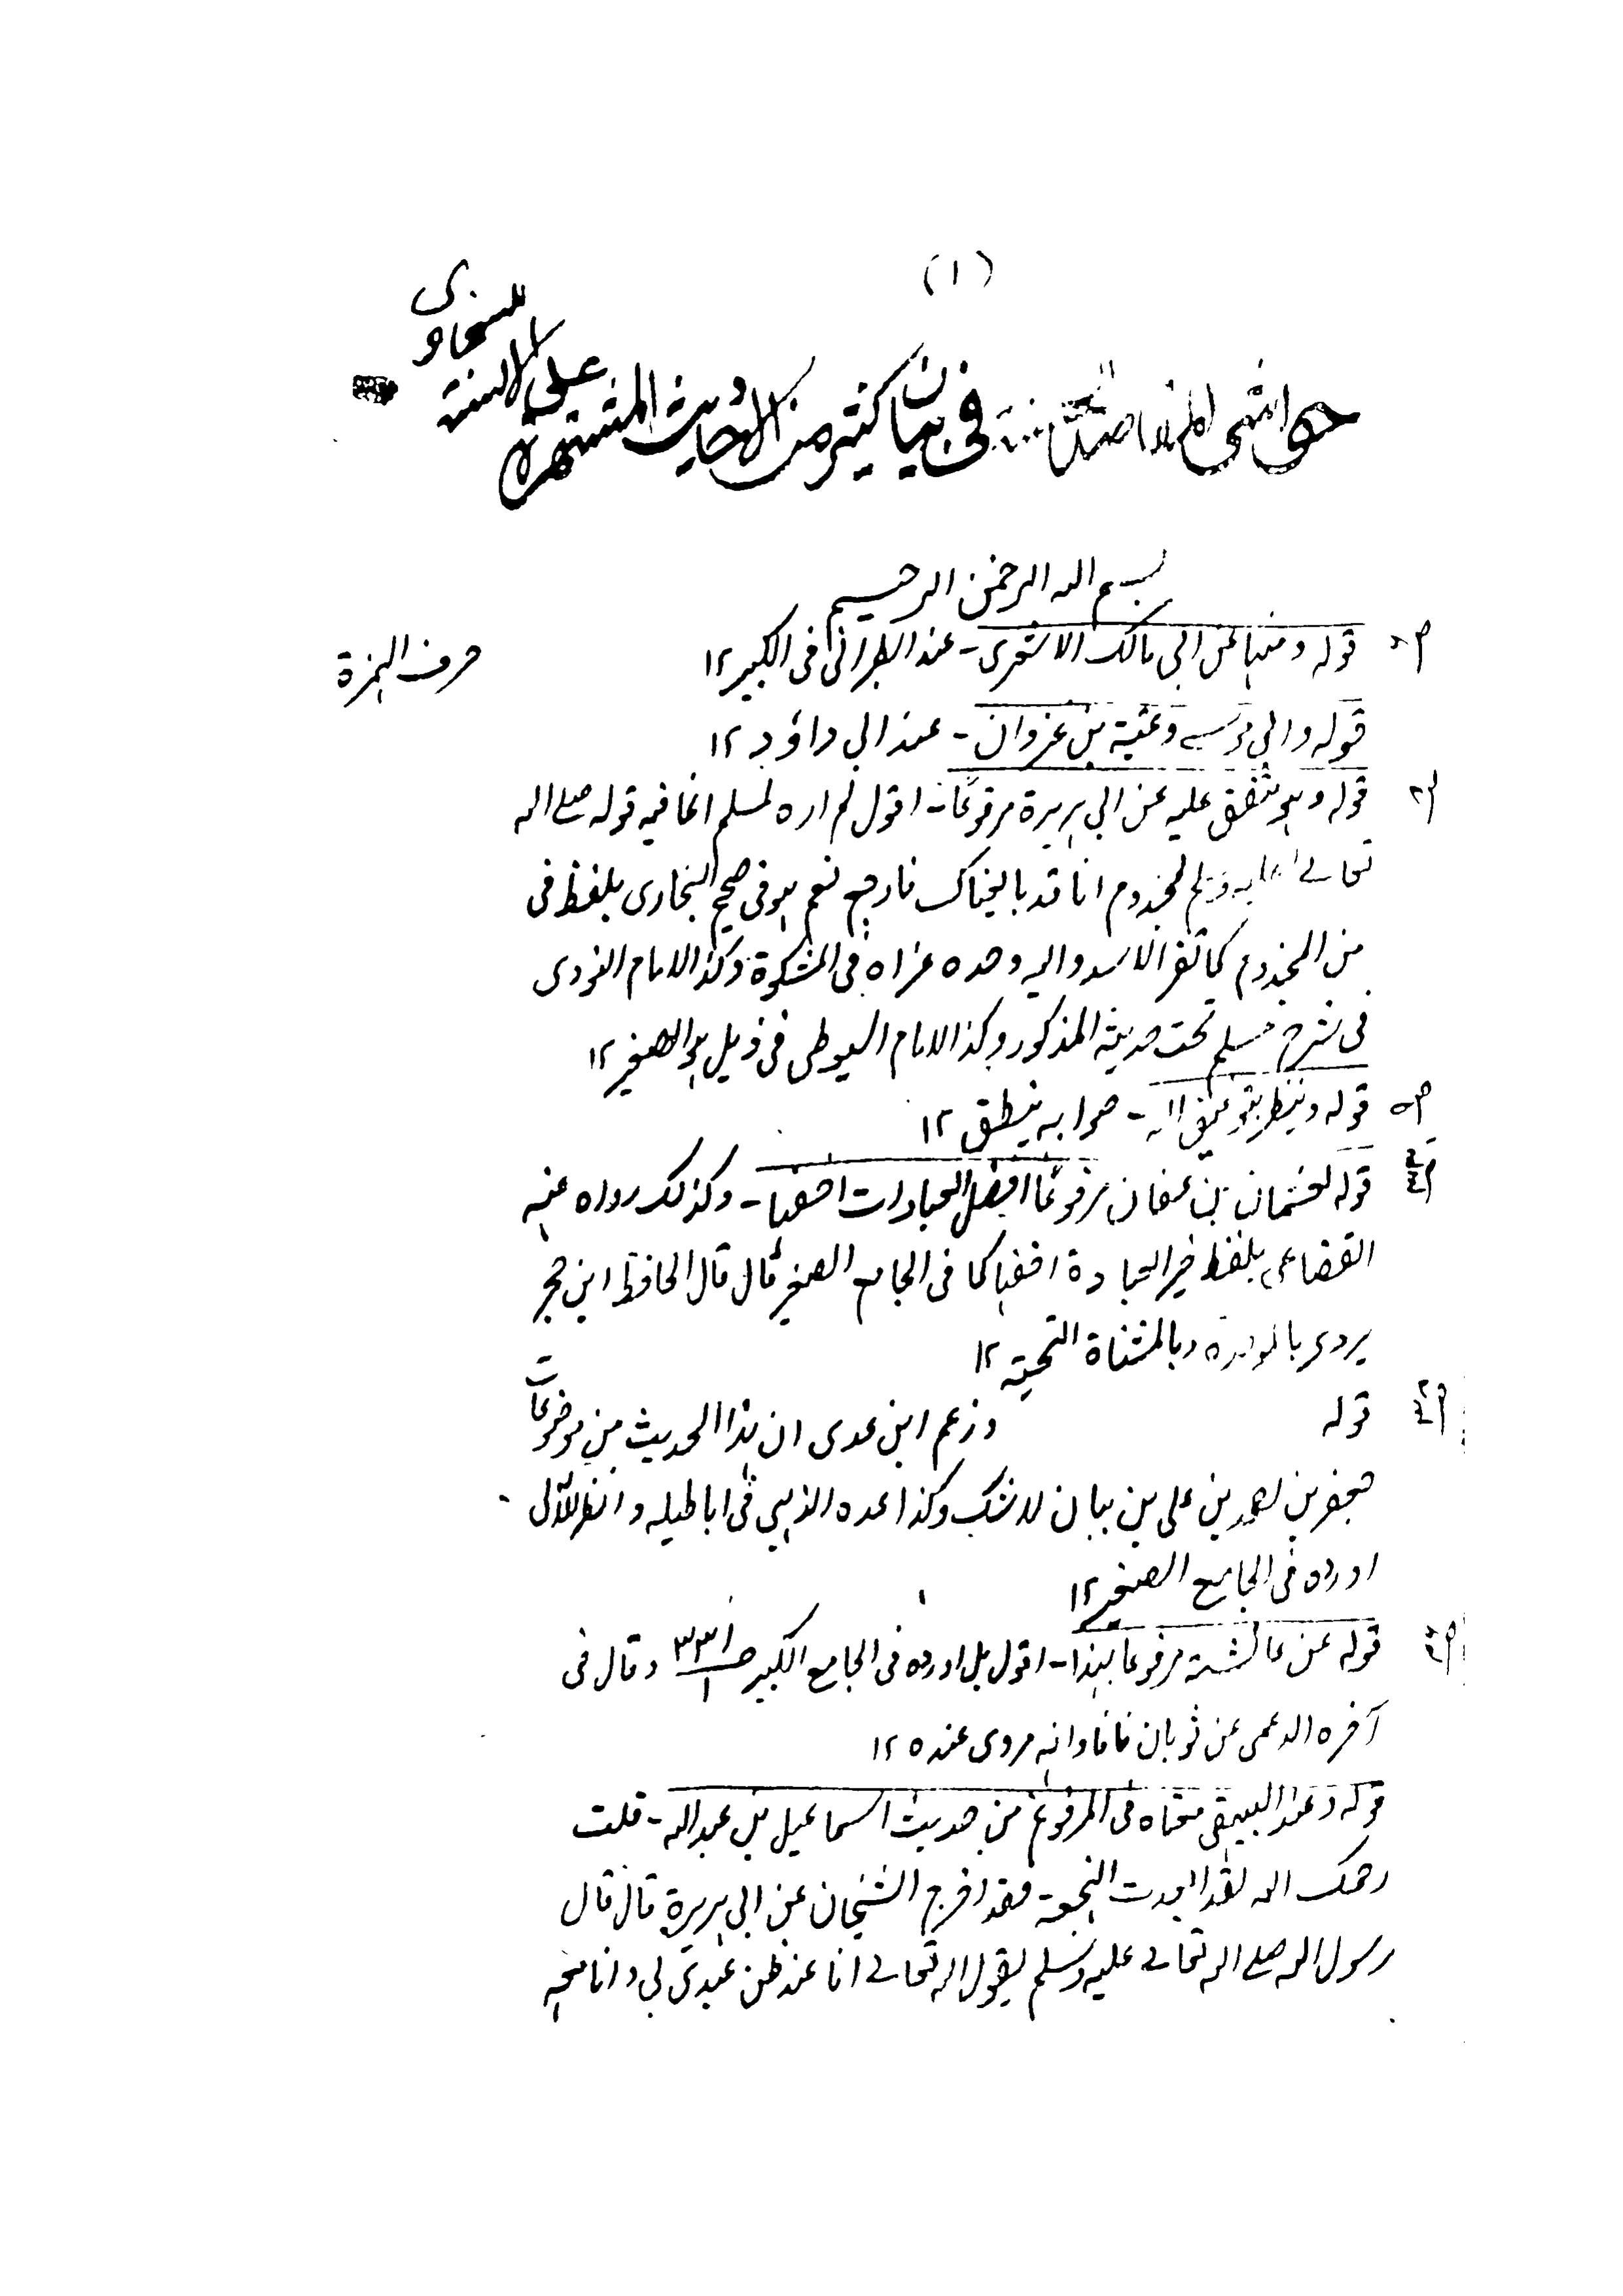 (١)
حواشي المقاصد الحسنة في بيان كثير من الاحاديث المشتهرة على الالسنة للسخاوى
بسم الله الرحمن الرحيم
حرف الهمزة
قوله ومنها عن ابي مالك الاشعرى - عند الطبراني في الكبير ١٢
قوله وابي وعتبة بن غزوان - عند ابي داؤد ١٢
قوله وهو متفق عليه عن ابي هريرة مرفوعًا - اقول لم اره لمسلم انما فيه قوله صلے الله
تعالے عليه وسلم لمجذوم انا قد بايعناك فارجع نعم هو في صحيح البخارى بلفظ فر
من المجذوم كما تفر من الاسد واليه وحده عزاه في المشكوة وكذا الامام النووى
في شرح مسلم تحت حديثه المذكور وكذا الامام السيوطى في ذيل الصغير ١٢
قوله وينظر بتوفيق الله - صوابه ينطق ١٢
قوله لعثمان بن عفان مرفوعًا افضل العبادات اخفها - وكذلك رواه عنه
القضاعى بلفظ خير العبادة اخفها كما في الجامع الصغير قال قال الحافظ ابن حجر
يروى بالموحدة وبالمثناة التحتية ١٢
قوله وزعم ابن عدى ان هذا الحديث من موضوعات
جعفر بن احمد بن على بن بيان لاشك وكذا عده الذهبي في اباطيله وانظر اللآلى
اورده في الجامع الصغير ١٢
قوله عن عائشة مرفوعا بهذا - اقول بل اورده في الجامع الكبير صـ ٣٣١/١ وقال في
آخره عن ثوبان فافاد انه مروى عنده ١٢
قوله وعند البيهقى معناه في المرفوع من حديث اسماعيل بن عبد الله - قلت
رحمك الله لقد ابعدت النجعة فقد اخرج الشيخان عن ابي هريرة قال قال
رسول الله صلے الله تعالے عليه وسلم يقول الله تعالے انا عند ظن عبدى بي وانا معه